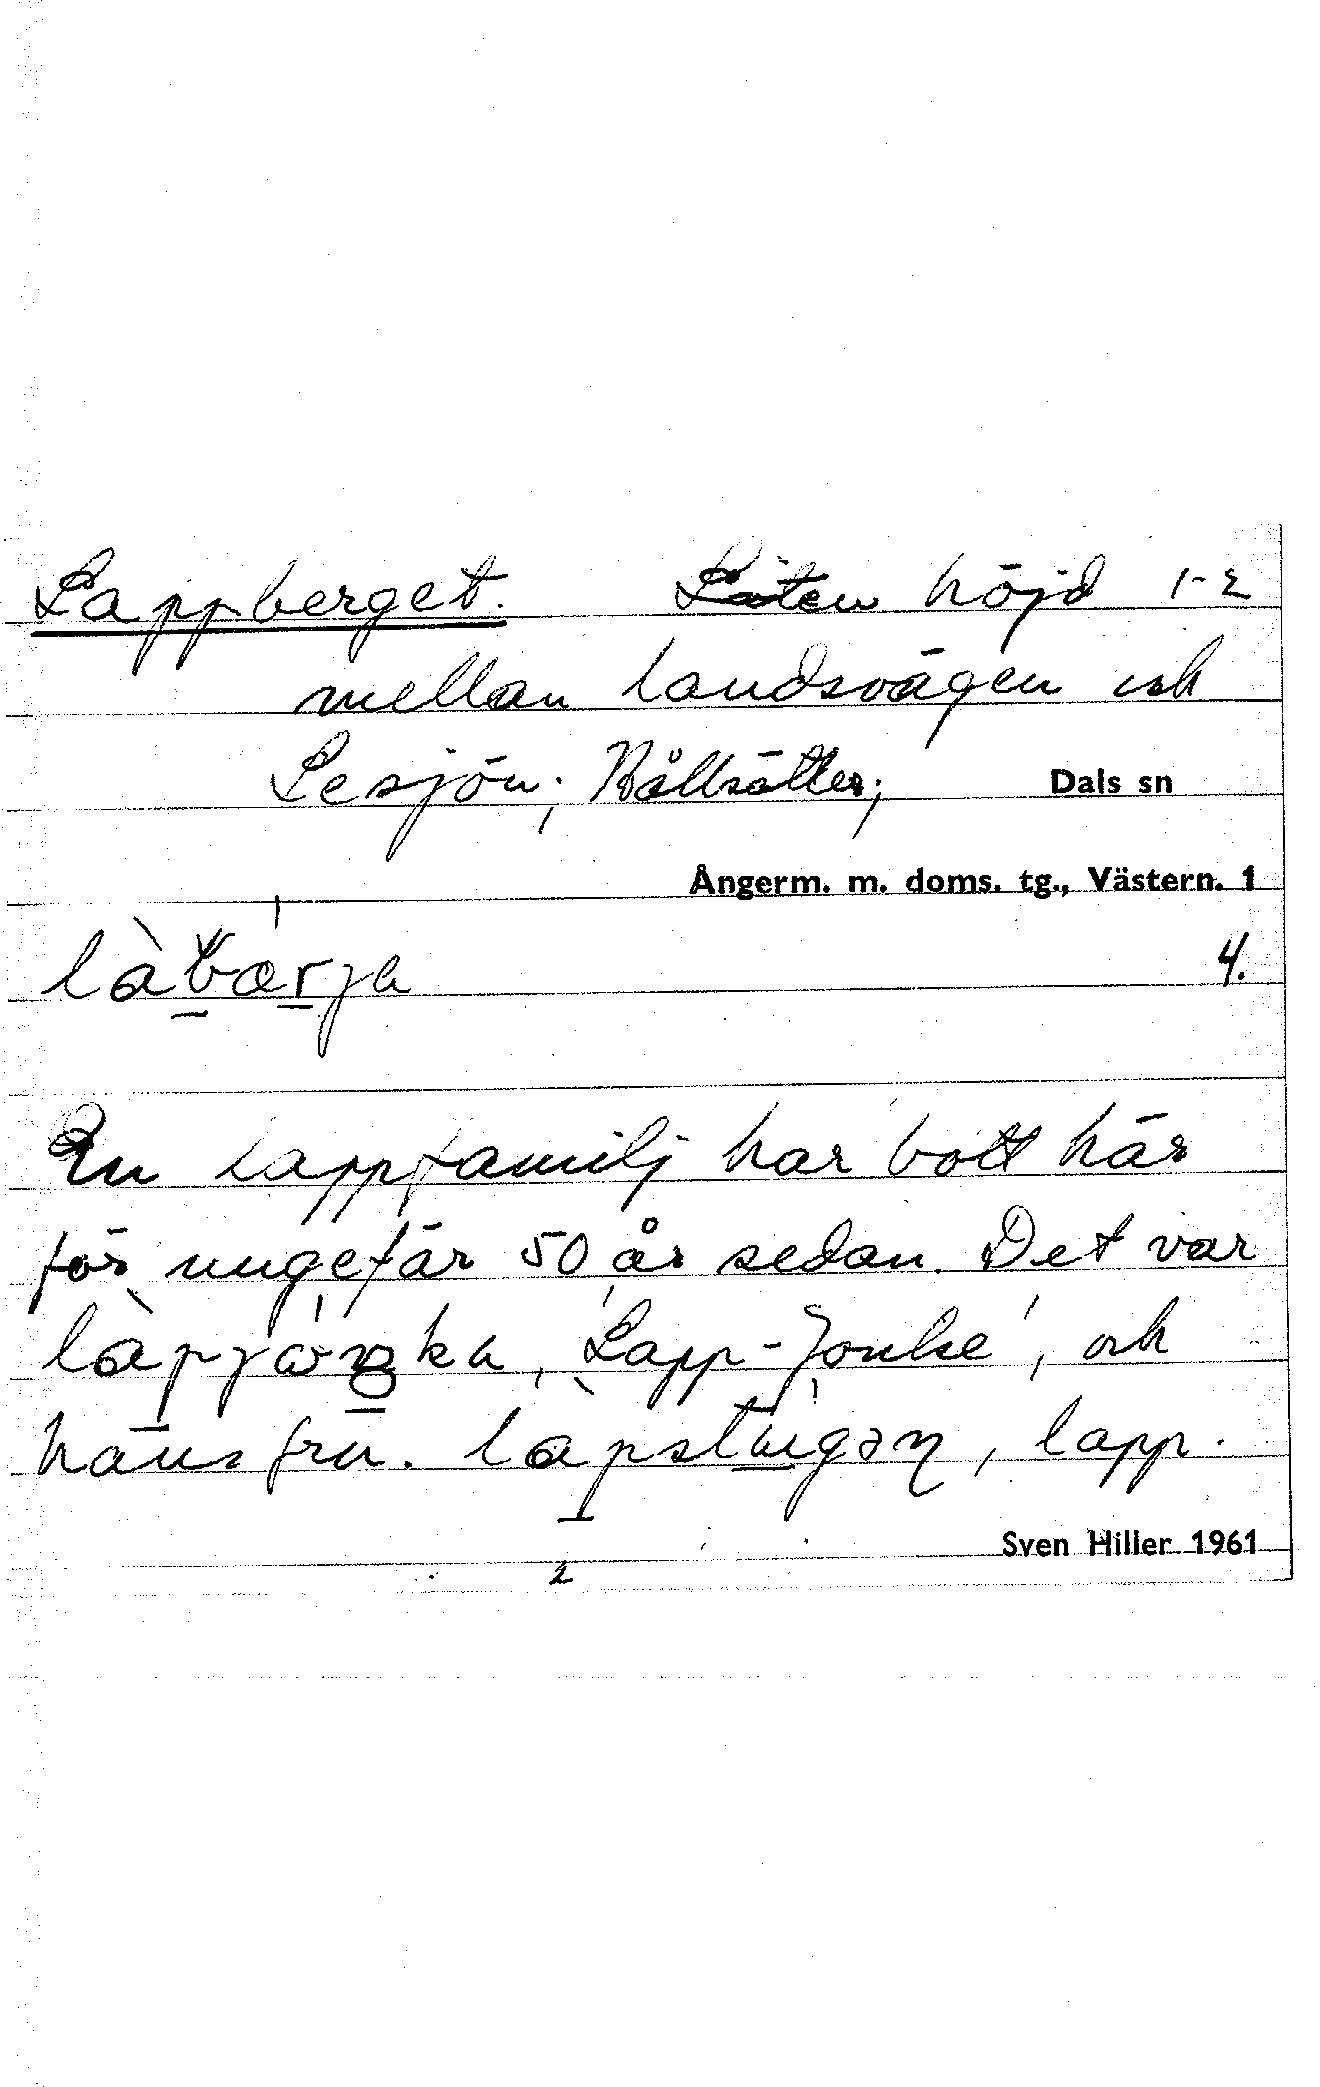 Lappberget. Liten höjd 1-2
mellan landsvägen och
Lesjön; Bållsätter; Dals sn
Ångerm. m. doms. tg., Västern. 1
4.
En lappfamilj har bott här
för ungefär 50 år sedan. Det var
'Lapp-Jonke', och
hans fru. lapp.
Sven Hiller 1961
2